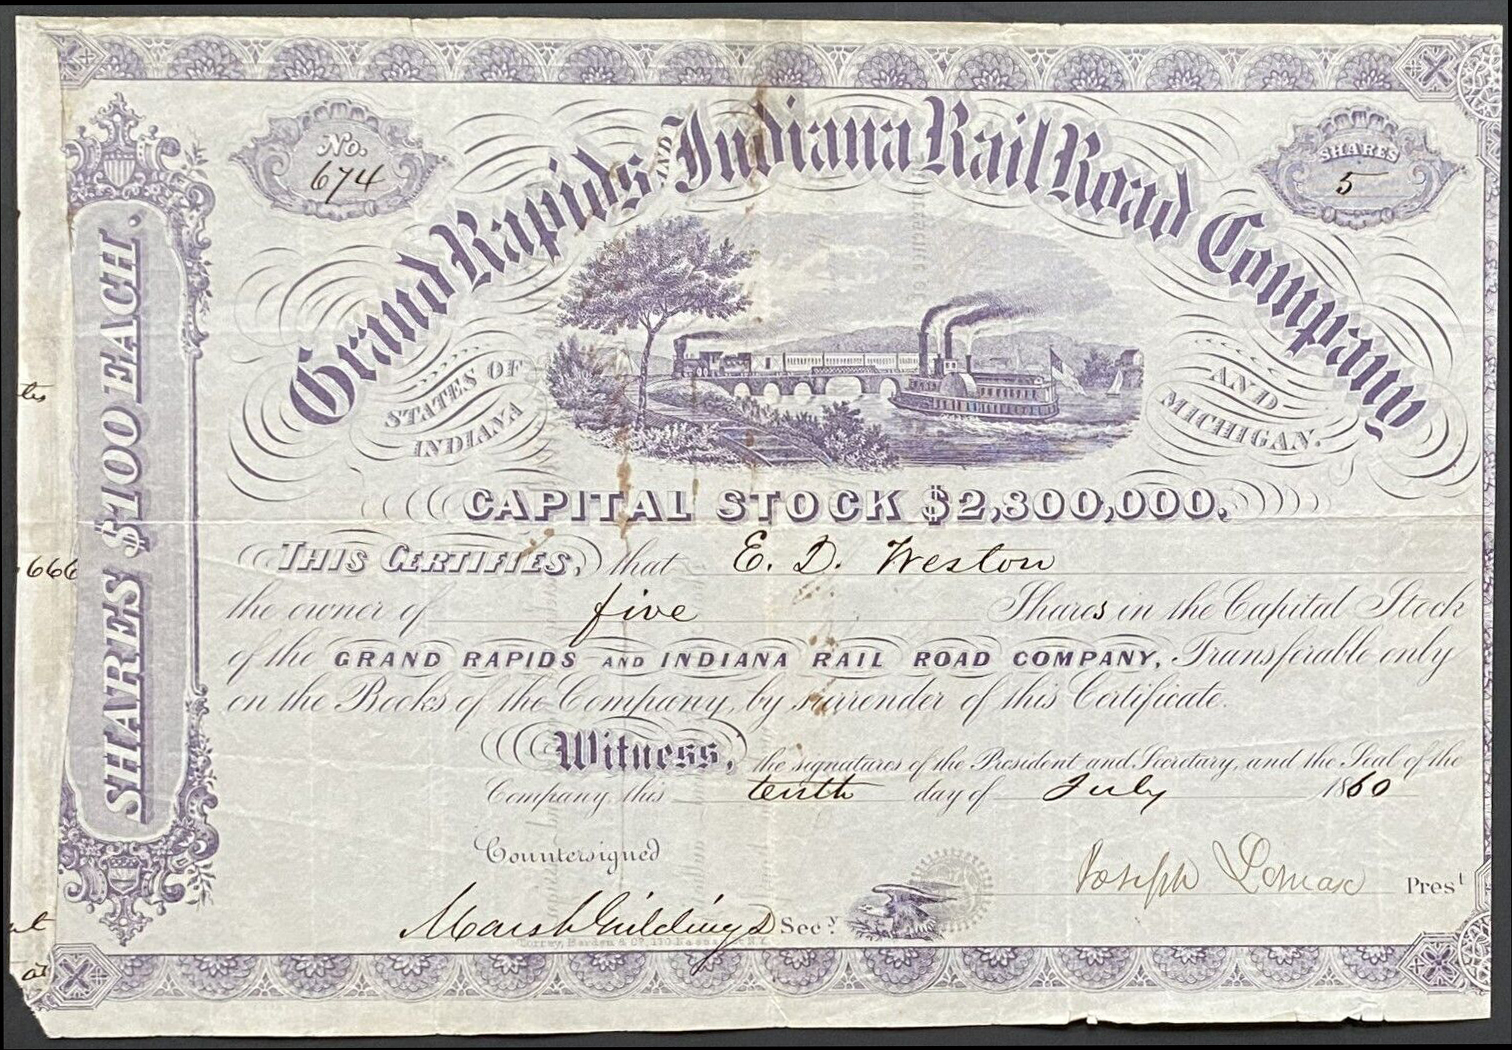 No.
674
SHARES
5
Grand Rapids AND Indiana Rail Road Company
STATES OF
INDIANA
AND
MICHIGAN.
SHARES $100 EACH.
CAPITAL STOCK $2,800,000.
THIS CERTIFIES, that E. D. Weston
the owner of five Shares in the Capital Stock
of the GRAND RAPIDS AND INDIANA RAIL ROAD COMPANY, Transferable only
on the Books of the Company, by surrender of this Certificate.
Witness, the signatures of the President and Secretary, and the Seal of the
Company, this tenth day of July 1860
Countersigned
Marsh Giddings Secy.
Joseph Lomax Prest
666